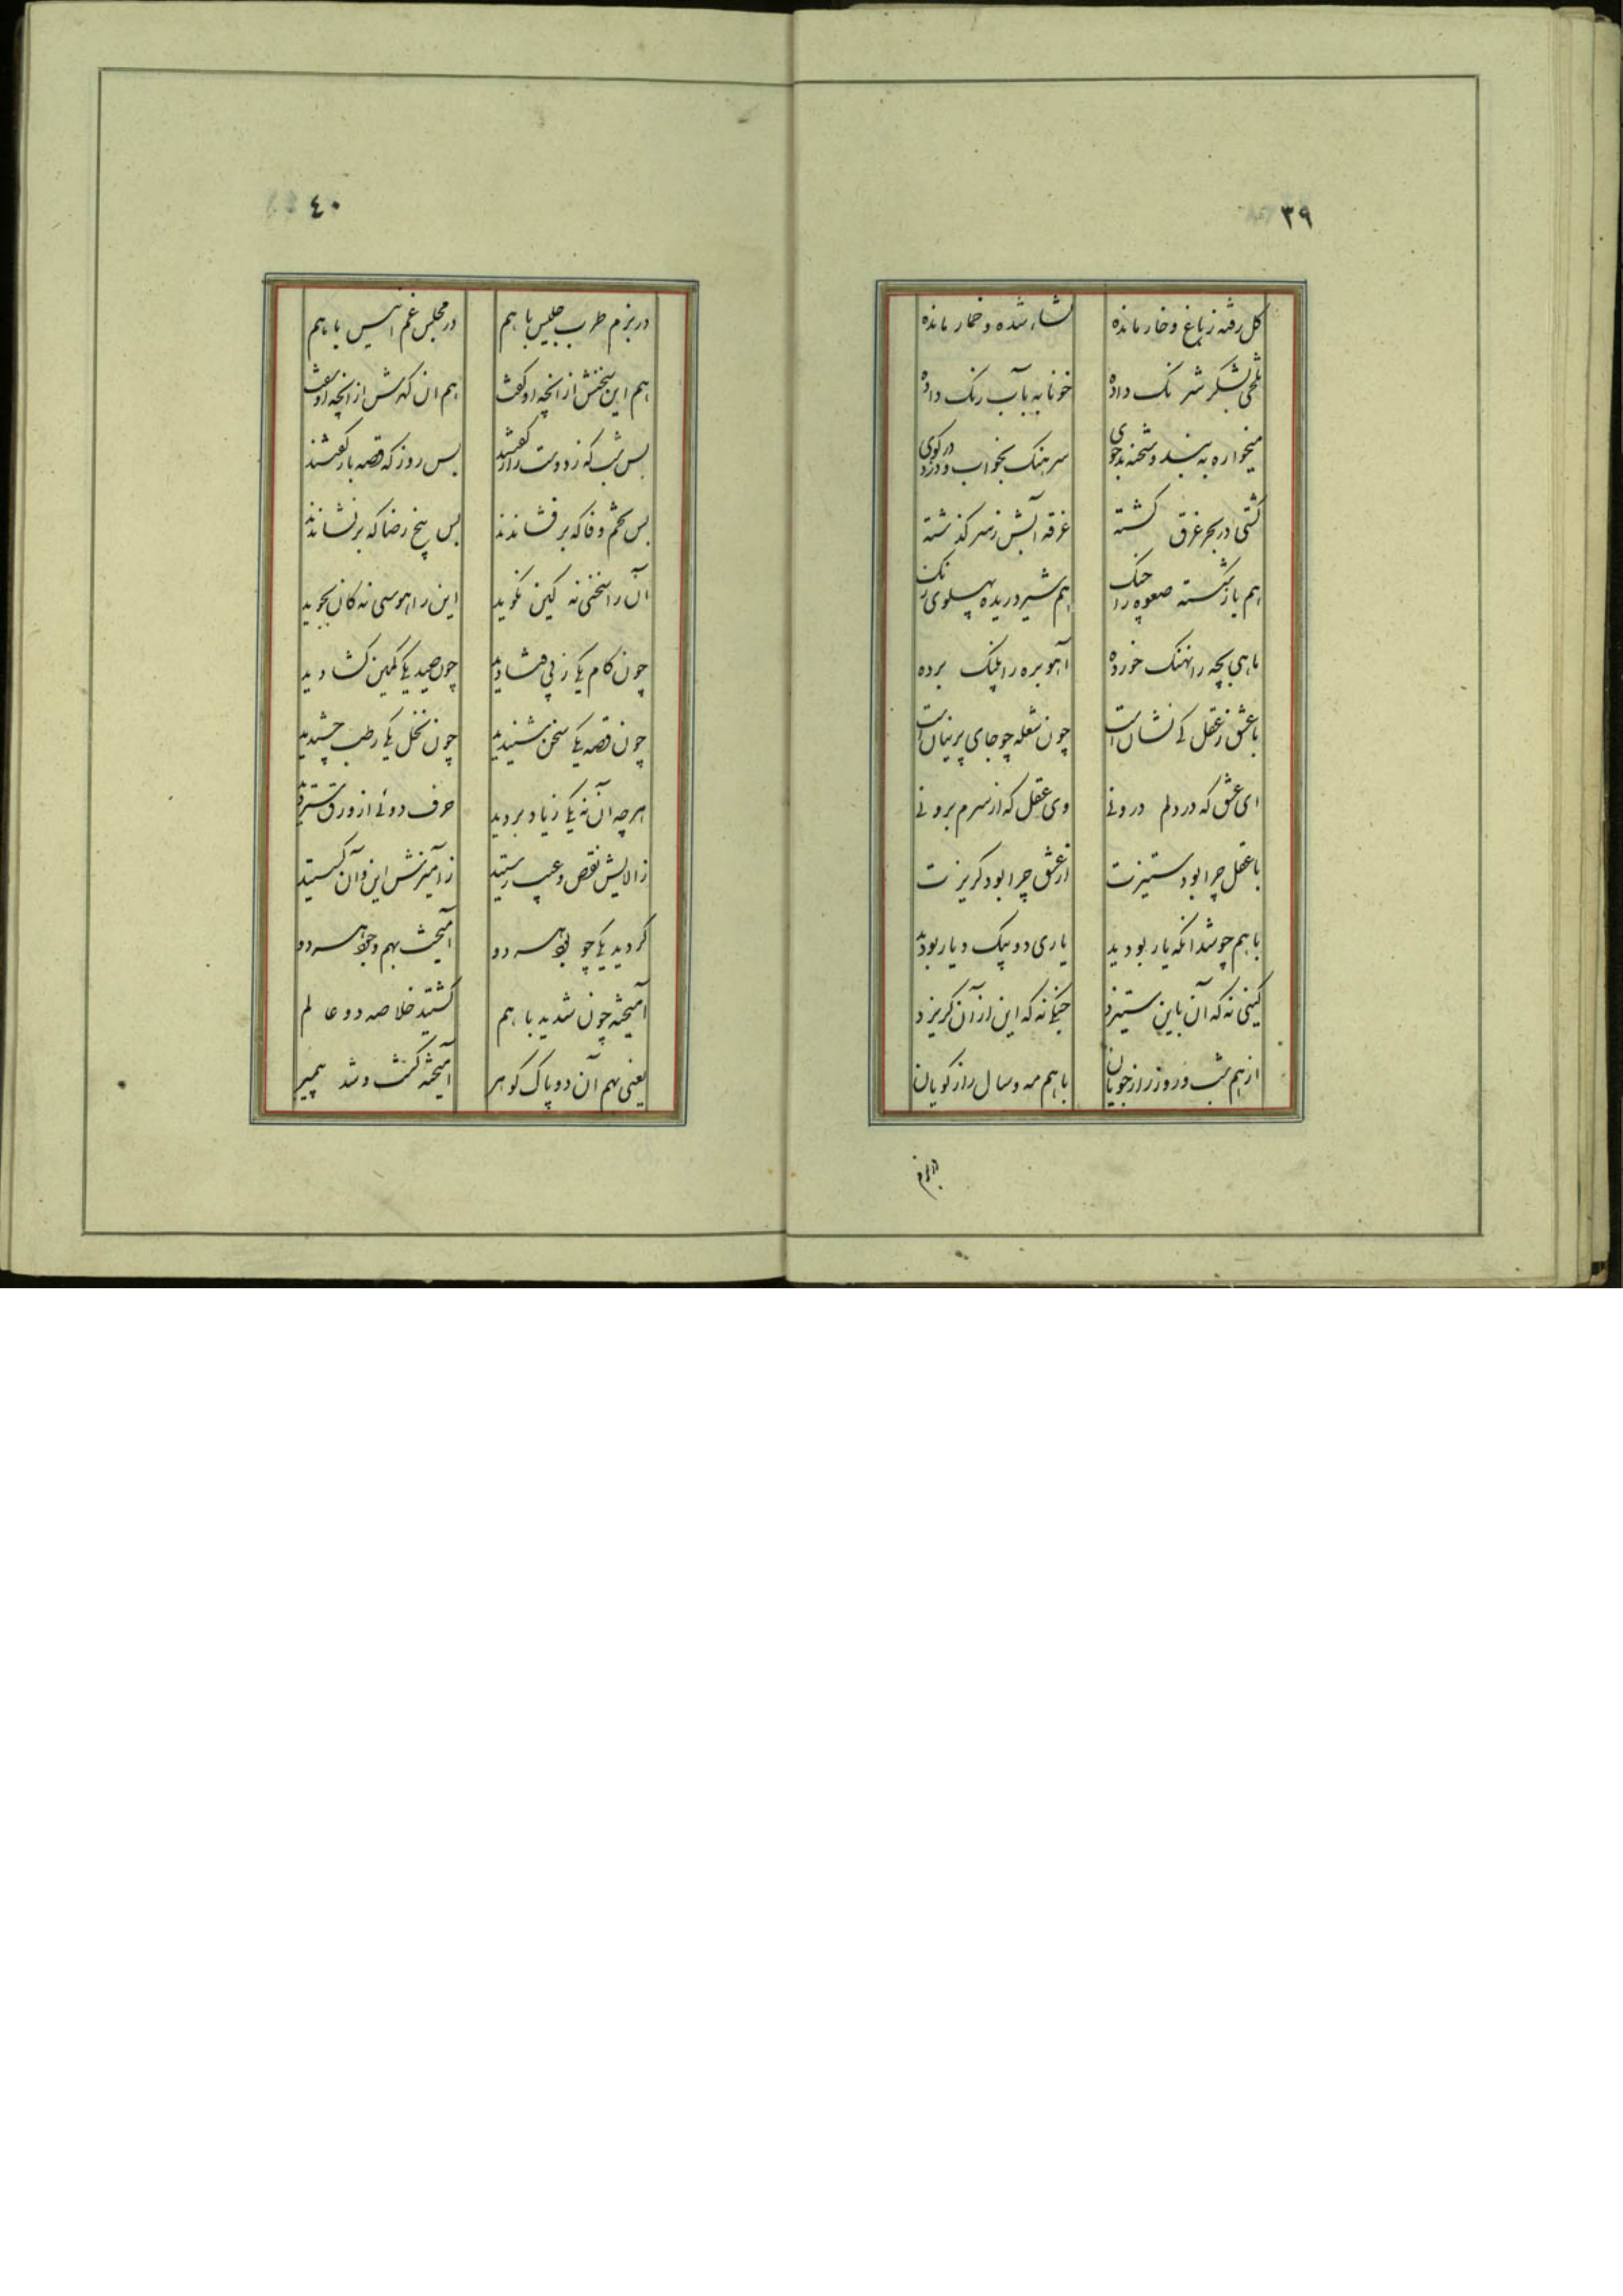 ٣٩
کل رفته ز باغ و خار مانده نشاء شده و خمار مانده
تلخی بشکر شرنک داده خونابه بآب رنک داده
میخواره به بند و شحنه بدخوی سرهنک بخواب و دزد در کوی
کشتی در بحر غرق کشته غرقه آبش ز سر کذشته
هم باز شکسته صعوه را چنک هم شیر دریده پهلوی رنک
ماهی بچه را نهنک خورده آهو بره را پلنک برده
با عشق ز عقل کی نشان است چون شعله چو جای پرنیان است
ای عشق که در دلم درونی وی عقل که از سرم برونی
با عقل چرا بود ستیزت از عشق چرا بود کریزت
با هم چو شد انکه یار بودید یاری دو بیک دیار بودید
کینی نه که آن باین ستیزد جنکی نه که این از آن کریزد
از هم شب و روز رازجویان با هم مه و سال رازکویان
در بزم
٤٠
در بزم طرب جلیس با هم در مجلس غم انیس با هم
هم این سخنش از انچه او کفت هم ان کهرش از انچه او سفت
بس شب که ز دوست راز کفتید بس روز که قصه باز کفتید
بس تخم وفا که برفشاندند بس بیخ رضا که برنشاندند
آن را سخنی نه کین نکوید این را هوسی نه کان بجوید
چون کام یکی ز پی فشادید چون صید یکی کمین کشادید
چون قصه یکی سخن شنیدید چون نخل یکی رطب چشیدید
هر چه آن نه یکی ز یاد بردید حرف دوئی از ورق ستردید
ز الایش نقص و عیب رستید ز آمیزش این و آن کسستید
کردید یکی چو بوی هر دو آمیخت بهم وجود هر دو
آمیخته چون شدید با هم کشتید خلاصه دو عالم
یعنی بهم آن دو پاک کوهر آمیخته کشت و شد پیمبر